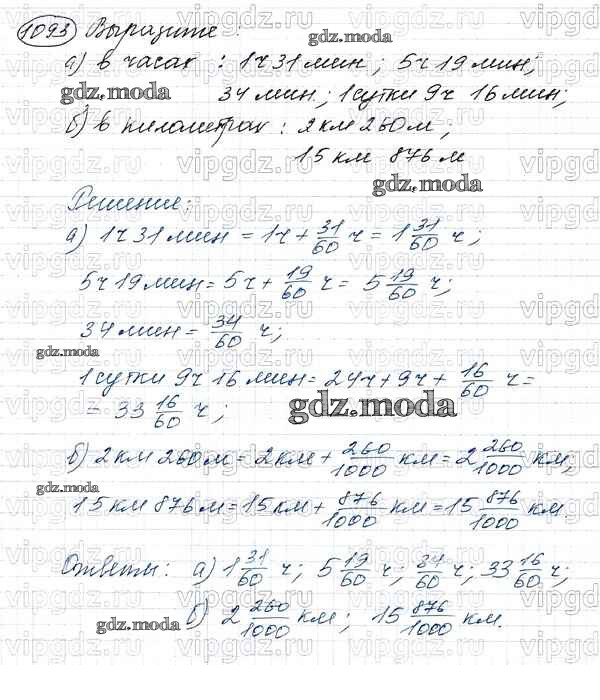 1093 Выразите:
gdz.moda
а) в часах : 1ч 31 мин ; 5ч 19 мин;
gdz.moda
34 мин.; 1 сутки 9ч 16 мин;
б) в километрах : 2 км 260 м;
15 км 876 м
gdz.moda
Решение:
а) 1ч 31 мин = 1ч + 31/60 ч = 1 31/60 ч;
5ч 19 мин = 5ч + 19/60 ч = 5 19/60 ч;
34 мин = 34/60 ч;
gdz.moda
1 сутки 9ч 16 мин = 24ч + 9ч + 16/60 ч =
= 33 16/60 ч;
gdz.moda
б) 2 км 260 м = 2 км + 260/1000 км = 2 260/1000 км;
gdz.moda
15 км 876 м = 15 км + 876/1000 км = 15 876/1000 км
Ответы: а) 1 31/60 ч; 5 19/60 ч; 34/60 ч; 33 16/60 ч;
б) 2 260/1000 км; 15 876/1000 км.
gdz.moda
vipgdz.ru